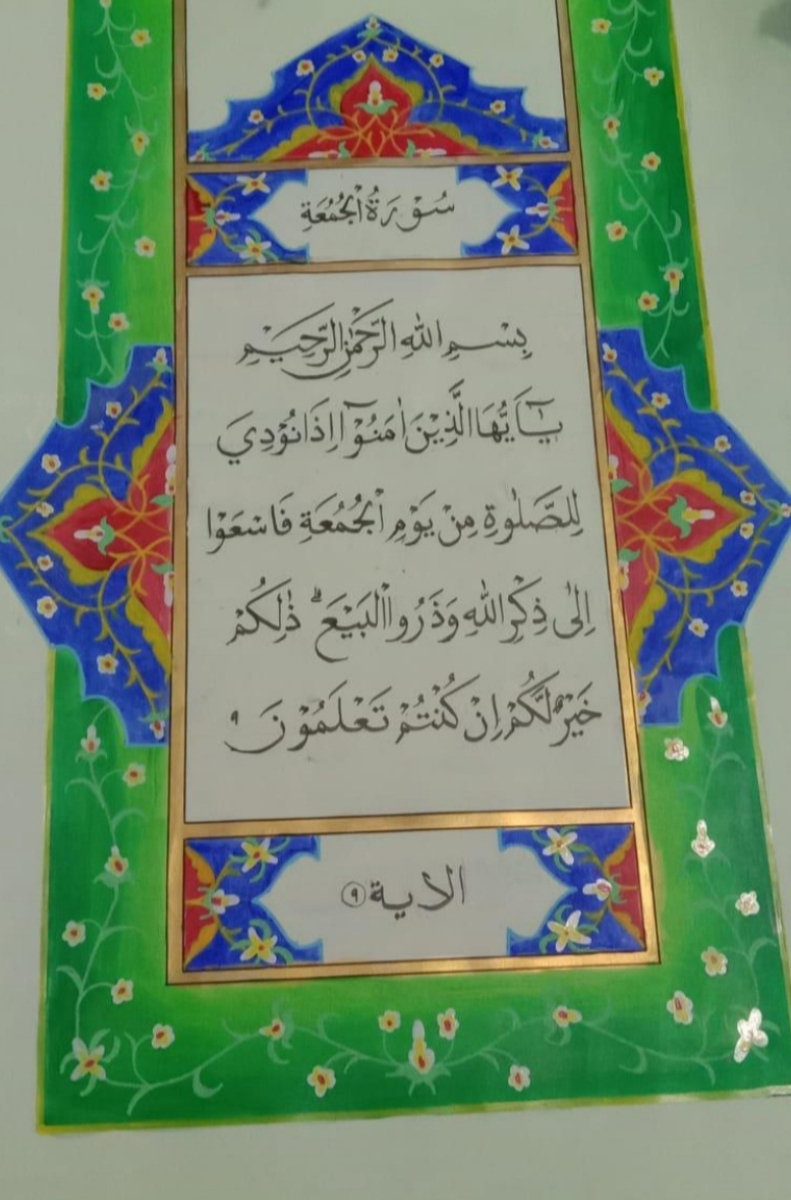 سُوْرَةُ الْجُمُعَةِ
بِسْمِ اللهِ الرَّحْمٰنِ الرَّحِيْمِ
يٰٓاَيُّهَا الَّذِيْنَ اٰمَنُوْٓا اِذَا نُوْدِيَ
لِلصَّلٰوةِ مِنْ يَوْمِ الْجُمُعَةِ فَاسْعَوْا
اِلٰى ذِكْرِ اللهِ وَذَرُوا الْبَيْعَ ۗ ذٰلِكُمْ
خَيْرٌ لَّكُمْ اِنْ كُنْتُمْ تَعْلَمُوْنَ ٩
الاية ٩